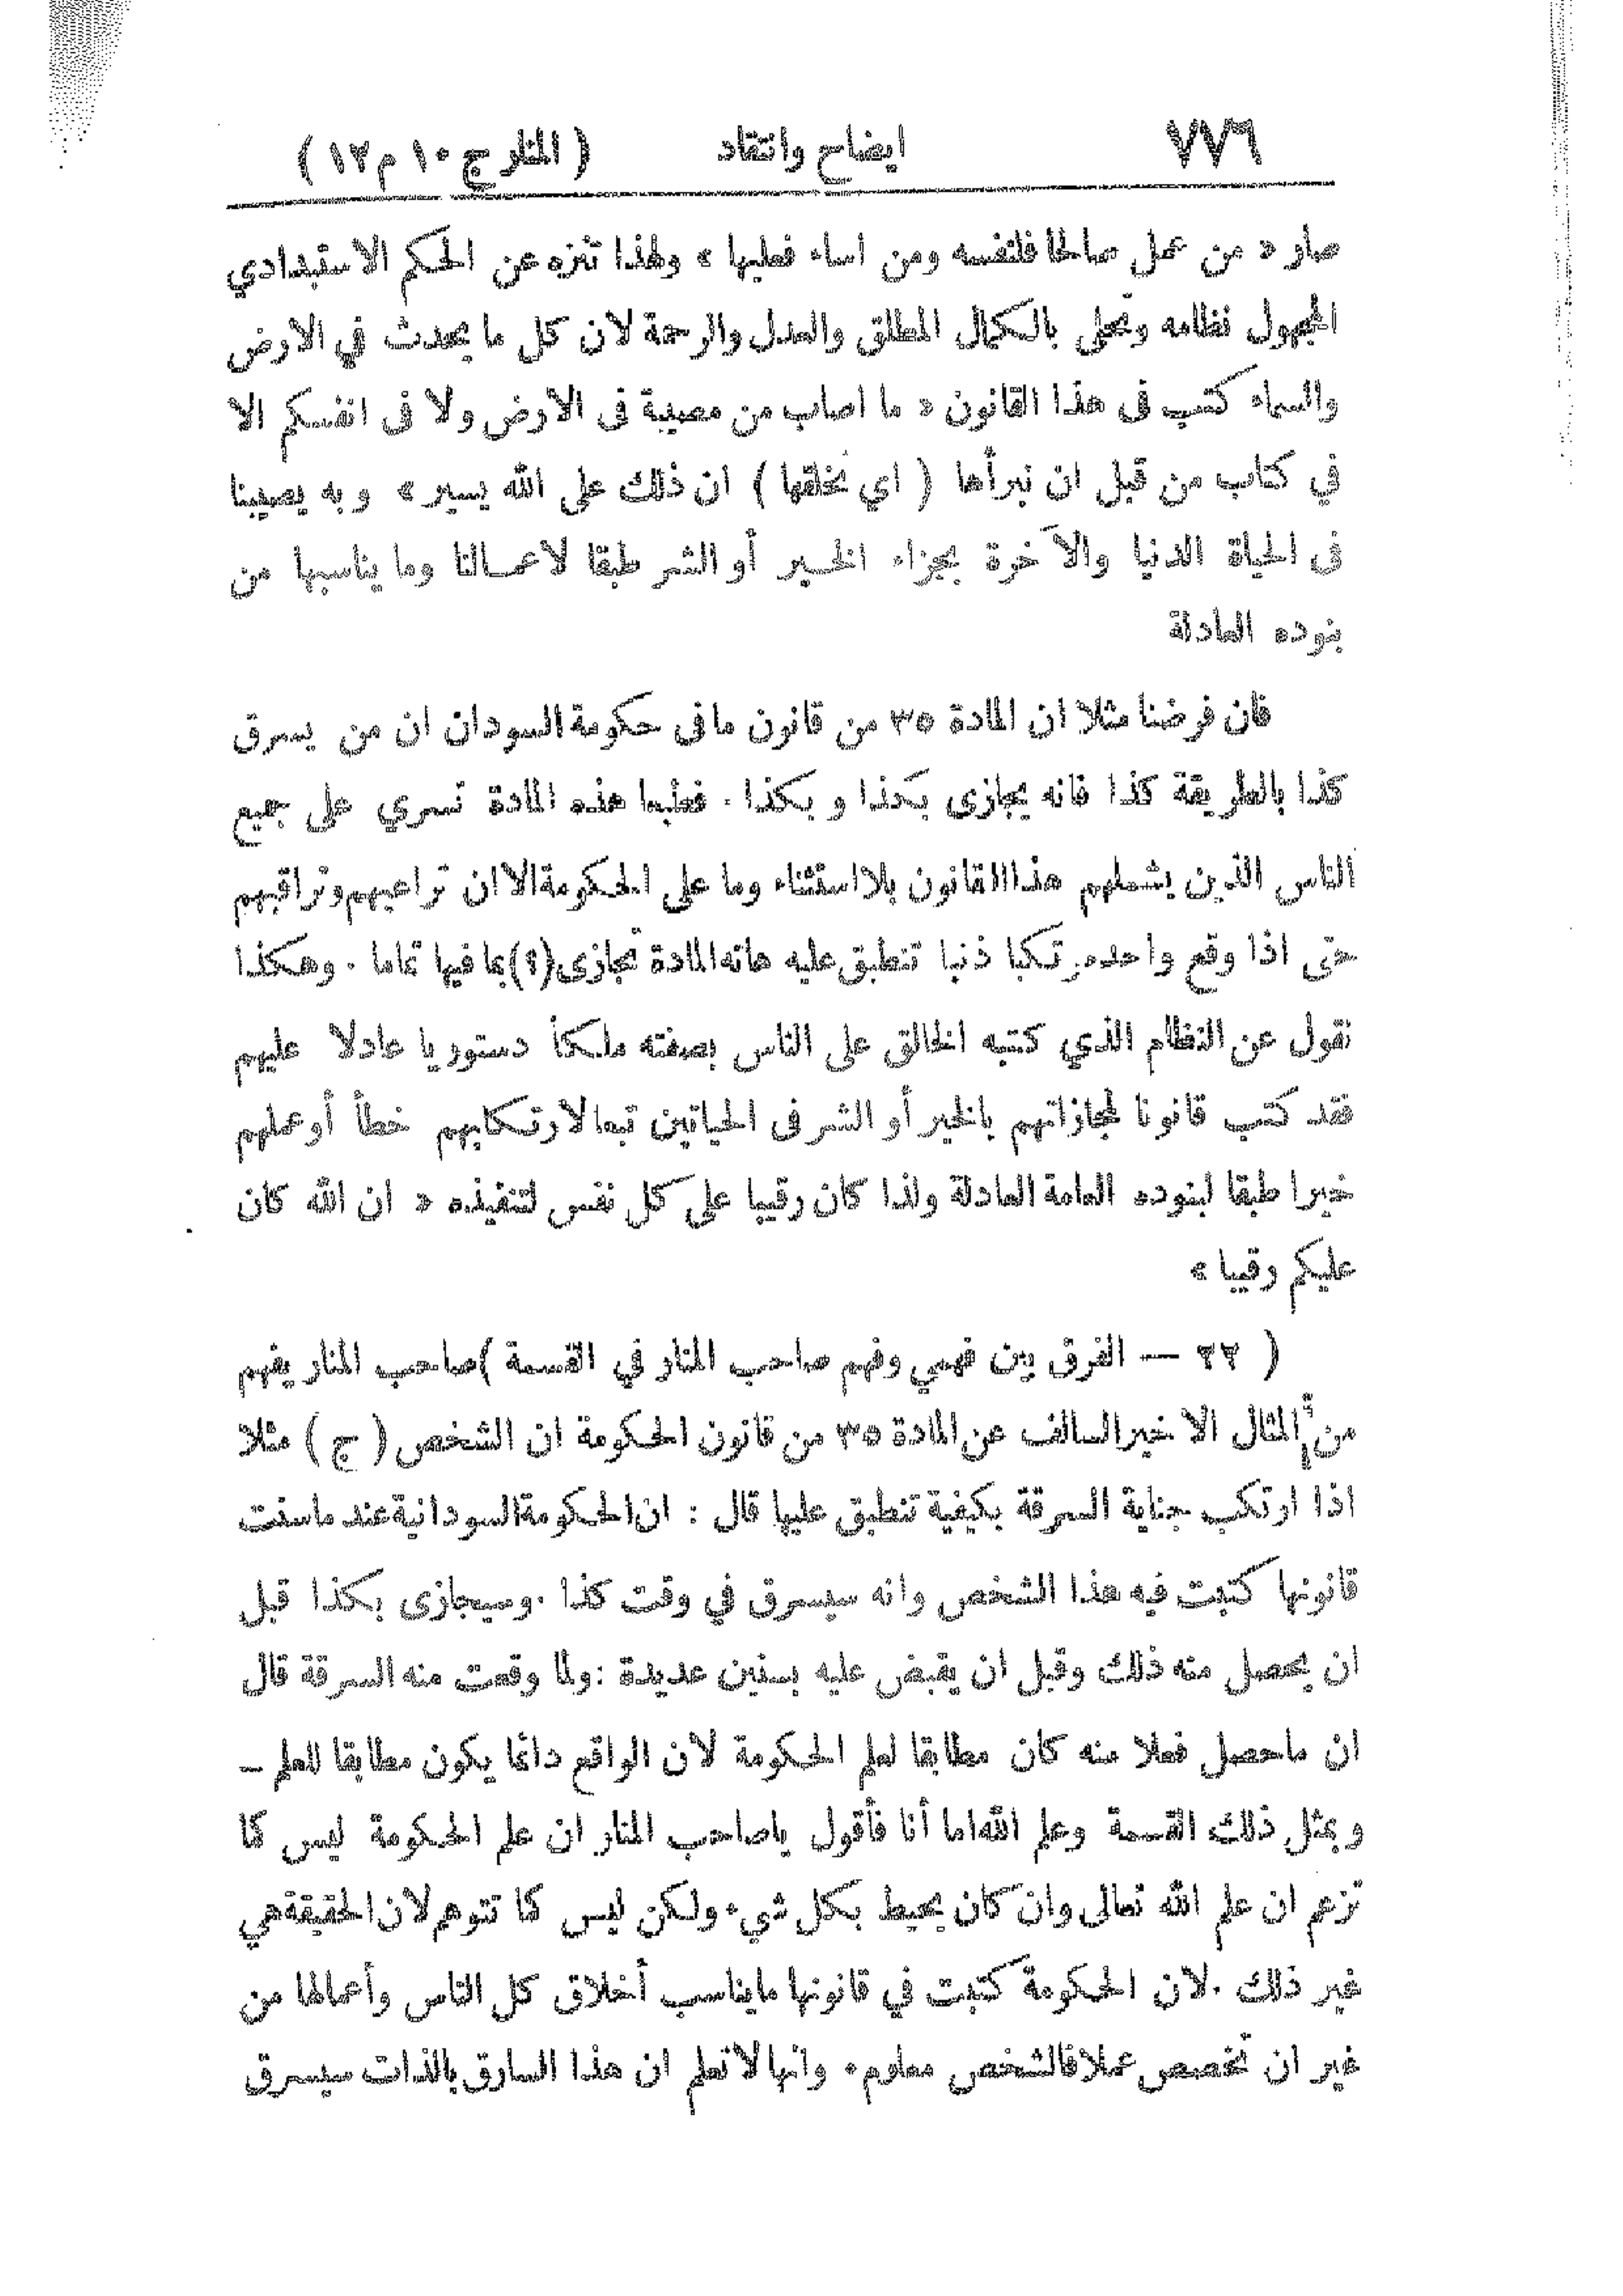 ٧٧٦ ايضاح وانتقاد ( المنار ج ١٠ م ١٢ )
صار « من عمل صالحا فلنفسه ومن اساء فعليها » ولهذا تنزه عن الحكم الاستبدادي
المجهول نظامه وتحلى بالكمال المطلق والعدل والرحمة لان كل ما يحدث في الارض
والسماء كتب فى هذا القانون « ما اصاب من مصيبة فى الارض ولا فى انفسكم الا
في كتاب من قبل ان نبرأها ( اي نخلقها ) ان ذلك على الله يسير » وبه يصيبنا
فى الحياة الدنيا والآخرة بجزاء الخير أو الشر طبقا لاعمالنا وما يناسبها من
بنوده العادلة
فان فرضنا مثلا ان المادة ٣٥ من قانون ما فى حكومة السودان ان من يسرق
كذا بالطريقة كذا فانه يجازى بكذا وبكذا . فطبعا هذه المادة تسري على جميع
الناس الذين يشملهم هذا القانون بلا استثناء وما على الحكومة الا ان تراعيهم وتراقبهم
حتى اذا وقع واحد مرتكبا ذنبا تنطبق عليه هاته المادة تجازى (؟) بما فيها تماما . وهكذا
نقول عن النظام الذي كتبه الخالق على الناس بصفته ملكاً دستوريا عادلا عليهم
فقد كتب قانونا لمجازاتهم بالخير أو الشر فى الحياتين تبعا لارتكابهم خطأ أو عملهم
خيرا طبقا لبنوده العامة العادلة ولذا كان رقيبا على كل نفس لتنفيذه « ان الله كان
عليكم رقيبا »
( ٢٢ — الفرق بين فهمي وفهم صاحب المنار في القسمة ) صاحب المنار يفهم
من المثال الاخير السالف عن المادة ٣٥ من قانون الحكومة ان الشخص ( ج ) مثلا
اذا ارتكب جناية السرقة بكيفية تنطبق عليها قال : ان الحكومة السودانية عند ما سنت
قانونها كتبت فيه هذا الشخص وانه سيسرق في وقت كذا . وسيجازى بكذا قبل
ان يحصل منه ذلك وقبل ان يقبض عليه بسنين عديدة : ولما وقعت منه السرقة قال
ان ما حصل فعلا منه كان مطابقا لعلم الحكومة لان الواقع دائما يكون مطابقا للعلم –
وبمثل ذلك القسمة وعلم الله اما أنا فأقول ياصاحب المنار ان علم الحكومة ليس كما
تزعم ان علم الله تعالى وان كان يحيط بكل شيء ولكن ليس كما تتوهم لان الحقيقة هي
غير ذلك . لان الحكومة كتبت في قانونها ما يناسب أخلاق كل الناس وأعمالها من
غير ان تخصص عملا فالشخص معلوم . وانها لا تعلم ان هذا السارق بالذات سيسرق